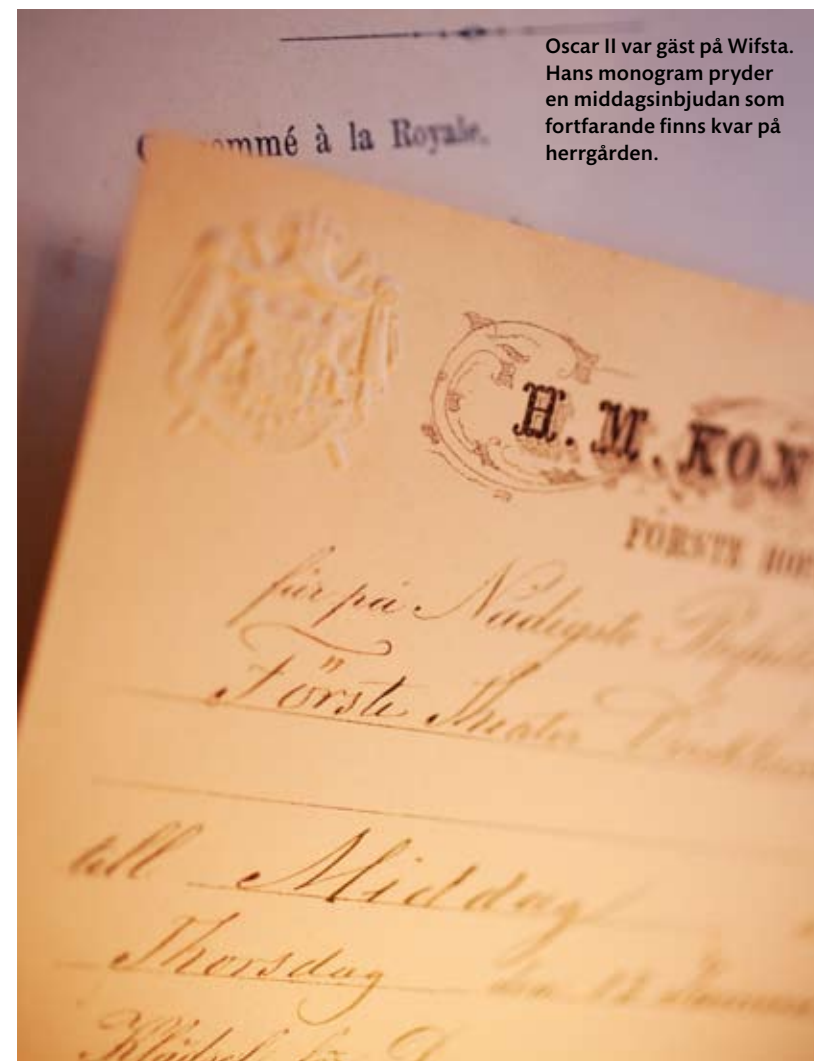 Oscar II var gäst på Wifsta.
Hans monogram pryder
en middagsinbjudan som
fortfarande finns kvar på
herrgården.
à la Royale.
H. M. KON
FÖRSTE HOF
får på Nådigste
Förste
till Middag
Thorsdag den 12
Klädsel för